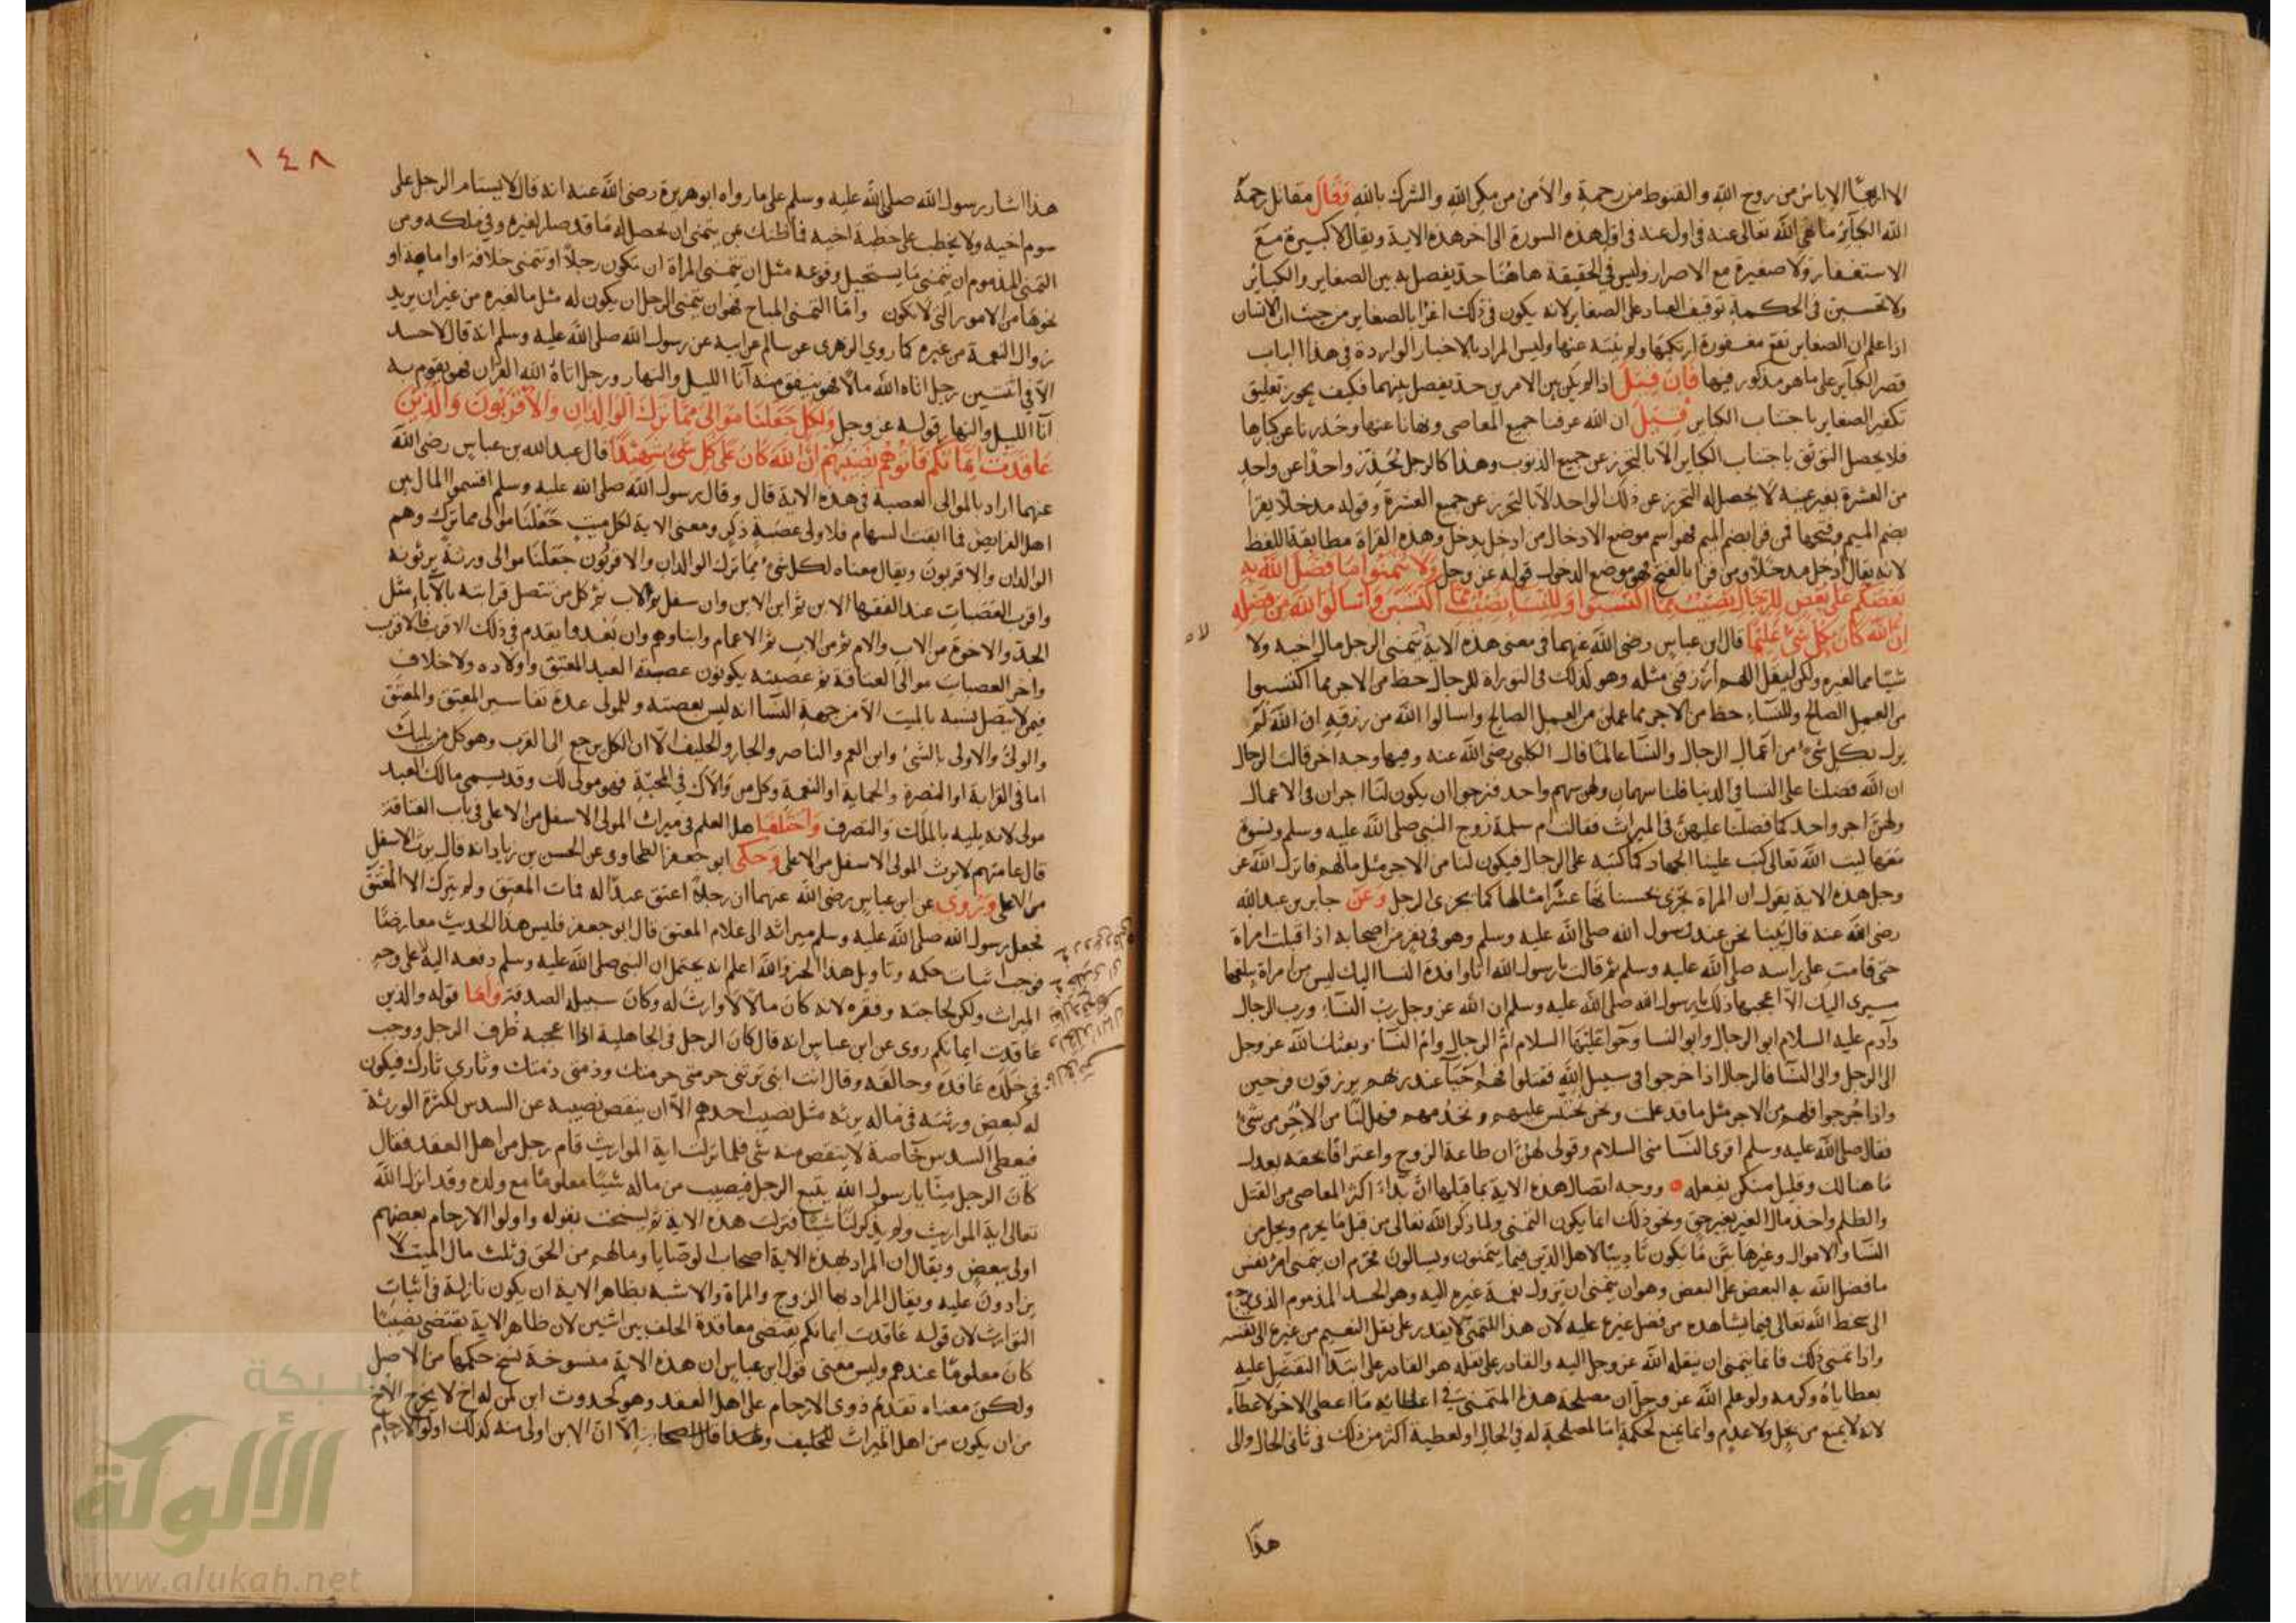 الا اربعا الاياس من روح الله والقنوط من رحمة والامن من مكر الله والشرك بالله وقال مقاتل رحمة
الله الكبائر ما نهى الله تعالى عنه في اول هذه السورة الى اخر هذه الاية ويقال لا كبيرة مع
الاستغفار ولا صغيرة مع الاصرار وليس في الحقيقة هاهنا حد يفصل به بين الصغاير والكباير
ولا تحسين في الحكمة توقيف العباد على الصغاير لانه يكون في ذلك اغرا بالصغاير من حيث ان الانسان
اذا علم ان الصغاير تقع مغفورة ارتكبها ولم ينته عنها وليس المراد بالاخبار الواردة في هذا الباب
قصر الكباير على ما هو مذكور فيها فان قيل اذا لم يكن بين الامرين حد يفصل بينهما فكيف يجوز تعليق
تكفير الصغاير باجتناب الكباير قيل ان الله عرفنا جميع المعاصي ونهانا عنها وحذرنا عن كبارها
فلا يحصل التوثق باجتناب الكباير الا بالتحرز عن جميع الذنوب وهذا كالرجل يحذر واحدا عن واحد
من العشرة بغير عينه لا يحصل له التحرز عن ذلك الواحد الا بالتحرز عن جميع العشرة وقوله مدخلا يقرا
بضم الميم وفتحها فمن قرا بضم الميم فهو اسم موضع الادخال من ادخل يدخل وهذه القراة مطابقة للفظ
لانه يقال ادخل مدخلا ومن قرا بالفتح فهو موضع الدخول قوله عز وجل ولا تتمنوا ما فضل الله به
بعضكم على بعض للرجال نصيب مما اكتسبوا وللنسا نصيب مما اكتسبن واسالوا الله من فضله
ان الله كان بكل شيء عليما قال ابن عباس رضي الله عنهما في معنى هذه الاية يتمنى الرجل مال اخيه ولا
شيئا مما لغيره ولكن ليقل اللهم ارزقني مثله وهو كذلك في التوراة للرجال حظ من الاجر مما اكتسبوا
من العمل الصالح وللنساء حظ من الاجر مما عملن من العمل الصالح واسالوا الله من رزقه ان الله لم
يزل بكل شيء من اعمال الرجال والنسا عالما قال الكلبي رضي الله عنه وفيها وجه اخر قالت الرجال
ان الله فضلنا على النسا في الدنيا فلنا سهمان ولهن سهم واحد فنرجو ان يكون لنا اجران في الاعمال
ولهن اجر واحد كما فضلنا عليهن في الميراث فقالت ام سلمة زوج النبي صلى الله عليه وسلم ونسوة
معها ليت الله تعالى كتب علينا الجهاد كما كتبه على الرجال فيكون لنا من الاجر مثل مالهم فانزل الله عز
وجل هذه الاية يقول ان المراة تجزى بحسناتها عشر امثالها كما يجزى الرجل وعن جابر بن عبد الله
رضي الله عنه قال بينا نحن عند رسول الله صلى الله عليه وسلم وهو في نفر من اصحابه اذ اقبلت امراة
حتى قامت على راسه صلى الله عليه وسلم ثم قالت يا رسول الله انا وافدة النسا اليك ليس من امراة يبلغها
مسيري اليك الا اعجبها ذلك يا رسول الله صلى الله عليه وسلم ان الله عز وجل رب النساء ورب الرجال
وآدم عليه السلام ابو الرجال وابو النسا وحوا عليها السلام ام الرجال وام النسا وبعثك الله عز وجل
الى الرجل والى النسا فالرجال اذا خرجوا في سبيل الله فقتلوا فهم احيآ عند ربهم يرزقون فرحين
واذا خرجوا فلهم من الاجر مثل ما قد علمت ونحن نحتبس عليهم ونخدمهم فهل لنا من الاجر من شيء
فقال صلى الله عليه وسلم اقري النسا مني السلام وقولي لهن ان طاعة الزوج واعترافا بحقه يعدل
ما هنالك وقليل منكن يفعله ووجه اتصال هذه الاية بما قبلها ان بداء اكثر المعاصي من القتل
والظلم واخذ مال الغير بغير حق ونحو ذلك انما يكون التمني ولما ذكر الله تعالى من قبل ما يحرم ويحل من
النسا والاموال وغيرها بين ما يكون تاديبا لاهل الدين فيما يتمنون ويسالون محرم ان يتمنى امر نفس
ما فضل الله به البعض على البعض وهو ان يتمنى ان تزول نعمة غيره اليه وهو الحسد المذموم الذي يرجع
الى سخط الله تعالى فيما يشاهده من فضل غيره عليه لان هذا المتمني لا يقدر على نقل النعيم من غيره الى نفسه
واذا تمنى ذلك فانما يتمنى ان ينقله الله عز وجل اليه والقادر على نقله هو القادر على ابتدآ التفضل عليه
بعطاياه وكرمه ولو علم الله عز وجل ان مصلحة هذا المتمني في اعطائه ما اعطى الاخر لاعطاه
لانه لا يمنع من بخل ولا عدم وانما يمنع لحكمة اما لمصلحة له في الحال او لعطية اكثر من ذلك في ثاني الحال والى
هذا
١٤٨
هذا اشار رسول الله صلى الله عليه وسلم على ما رواه ابو هريرة رضي الله عنه انه قال لا يستام الرجل على
سوم اخيه ولا يخطب على خطبة اخيه فما ظنك بمن يتمنى ان يحصل له ما قد صار لغيره وفي ملكه ومن
التمني المذموم ان يتمنى ما يستحيل وقوعه مثل ان تتمنى المراة ان تكون رجلا او تتمنى خلافة او امامة او
نحوها من الامور التي لا تكون واما التمني المباح فهو ان يتمنى الرجل ان يكون له مثل ما لغيره من غير ان يريد
زوال النعمة من غيره كما روي الزهري عن سالم عن ابيه عن رسول الله صلى الله عليه وسلم انه قال لا حسد
الا في اثنتين رجل اتاه الله مالا فهو ينفق منه آنا الليل والنهار ورجل اتاه الله القران فهو يقوم به
آنا الليل والنهار قوله عز وجل ولكل جعلنا موالى مما ترك الوالدان والاقربون والذين
عاقدت ايمانكم فآتوهم نصيبهم ان الله كان على كل شيء شهيدا قال عبد الله بن عباس رضي الله
عنهما اراد بالموالي العصبة في هذه الاية قال وقال رسول الله صلى الله عليه وسلم اقسموا المال بين
اهل الفرايض فما ابقت السهام فلاولى عصبة ذكر ومعنى الاية لكل ميت جعلنا موالى مما ترك وهم
الوالدان والاقربون ويقال معناه لكل شيء مما ترك الوالدان والاقربون جعلنا موالى ورثة يرثونه
واقرب العصبات عند الفقها الابن ثم ابن الابن وان سفل ثم الاب ثم كل من تتصل قرابته بالآباء مثل
الجد والاخوة من الاب والام ثم من الاب ثم الاعمام وابناوهم وان بعدوا يقدم في ذلك الاقرب فالاقرب
واخر العصبات موالى العتاقة ثم عصبته يكونون عصبة العبد المعتق واولاده ولا خلاف
فيمن لا يتصل نسبه بالميت الا من جهة النسا انه ليس بعصبته وللمولى عدة تفاسير المعتق والمعتق
والولي والاولى بالشيء وابن العم والناصر والجار والحليف الا ان الكل يرجع الى القرب وهو كل من يليك
اما في القرابة او النصرة والحماية او النعمة وكل من والاك في المحبة فهو مولى لك وقد يسمى مالك العبد
مولى لانه يليه بالملك والتصرف واختلف اهل العلم في ميراث المولى الاسفل من الاعلى في باب العتاقة
قال عامتهم لا يرث المولى الاسفل من الاعلى وحكى ابو جعفر الطحاوي عن الحسن بن زياد انه قال يرث الاسفل
من الاعلى ويروى عن ابن عباس رضي الله عنهما ان رجلا اعتق عبدا له فمات المعتق ولم يترك الا المعتق
فجعل رسول الله صلى الله عليه وسلم ميراثه الى غلام المعتق قال ابو جعفر فليس هذا الحديث معارضا
فوجب اثبات حكمه وتاويل هذا الخبر والله اعلم انه يحتمل ان النبي صلى الله عليه وسلم دفعه اليه على وجه
الميراث ولكن لحاجته وفقره لانه كان مالا لا وارث له وكان سبيله الصدقة واما قوله والذين
عاقدت ايمانكم روى عن ابن عباس انه قال كان الرجل في الجاهلية اذا اعجبه ظرف الرجل ووجب
في خلده عاقده وحالفه وقال انت ابني ترثني حرمتي حرمتك وذمتي ذمتك وثاري ثارك فيكون
له كبعض ورثته في ماله يرثه مثل نصيب احدهم الا ان ينقص نصيبه عن السدس لكثرة الورثة
فيعطى السدس خاصة لا ينقص منه شي فلما نزلت اية المواريث قام رجل من اهل العقد فقال
كان الرجل منا يا رسول الله يتبع الرجل فيصيب من ماله شيئا معلوما مع ولده وقد انزل الله
تعالى اية المواريث ولم يذكر لنا شيئا فنزلت هذه الاية ثم نسخت بقوله واولوا الارحام بعضهم
اولى ببعض ويقال ان المراد بهذه الاية اصحاب الوصايا ومالهم من الحق في ثلث مال الميت لا
يزادون عليه ويقال المراد بها الزوج والمراة والاشبه بظاهر الاية ان يكون نازلة في اثبات
التوارث لان قوله عاقدت ايمانكم يقتضي معاقدة الحلف بين اثنين لان ظاهر الاية يقتضي نصيبا
كان معلوما عندهم وليس معنى قول ابن عباس ان هذه الاية منسوخة نسخ حكمها من الاصل
ولكن معناه تقديم ذوي الارحام على اهل العقد وهو كحدوث ابن لمن له اخ لا يخرج الاخ
من ان يكون من اهل الميراث الا ان الابن اولى منه كذلك اولو الارحام
شبكة
الألوكة
www.alukah.net